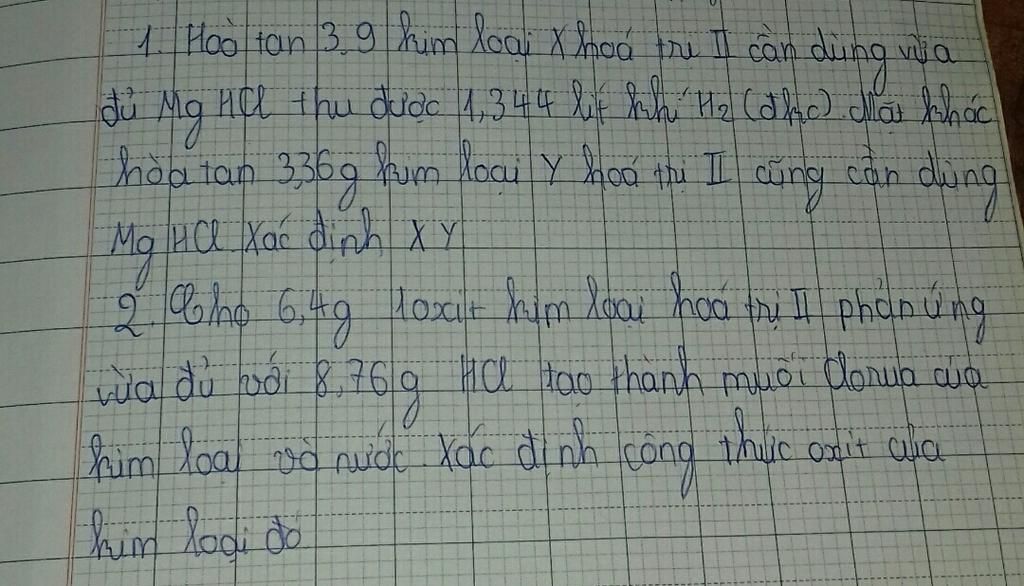 1. Hoà tan 3,9 kim loại X hoá trị II cần dùng vừa
đủ Mg HCl thu được 1,344 lít khí H2 (đktc). Mặt khác
hòa tan 3,36g kim loại Y hoá trị II cũng cần dùng
Mg HCl Xác định X Y
2. Cho 6,4g 1 oxit kim loại hoá trị II phản ứng
vừa đủ với 8,76g HCl tạo thành muối clorua của
kim loại và nước. Xác định công thức oxit của
kim loại đó